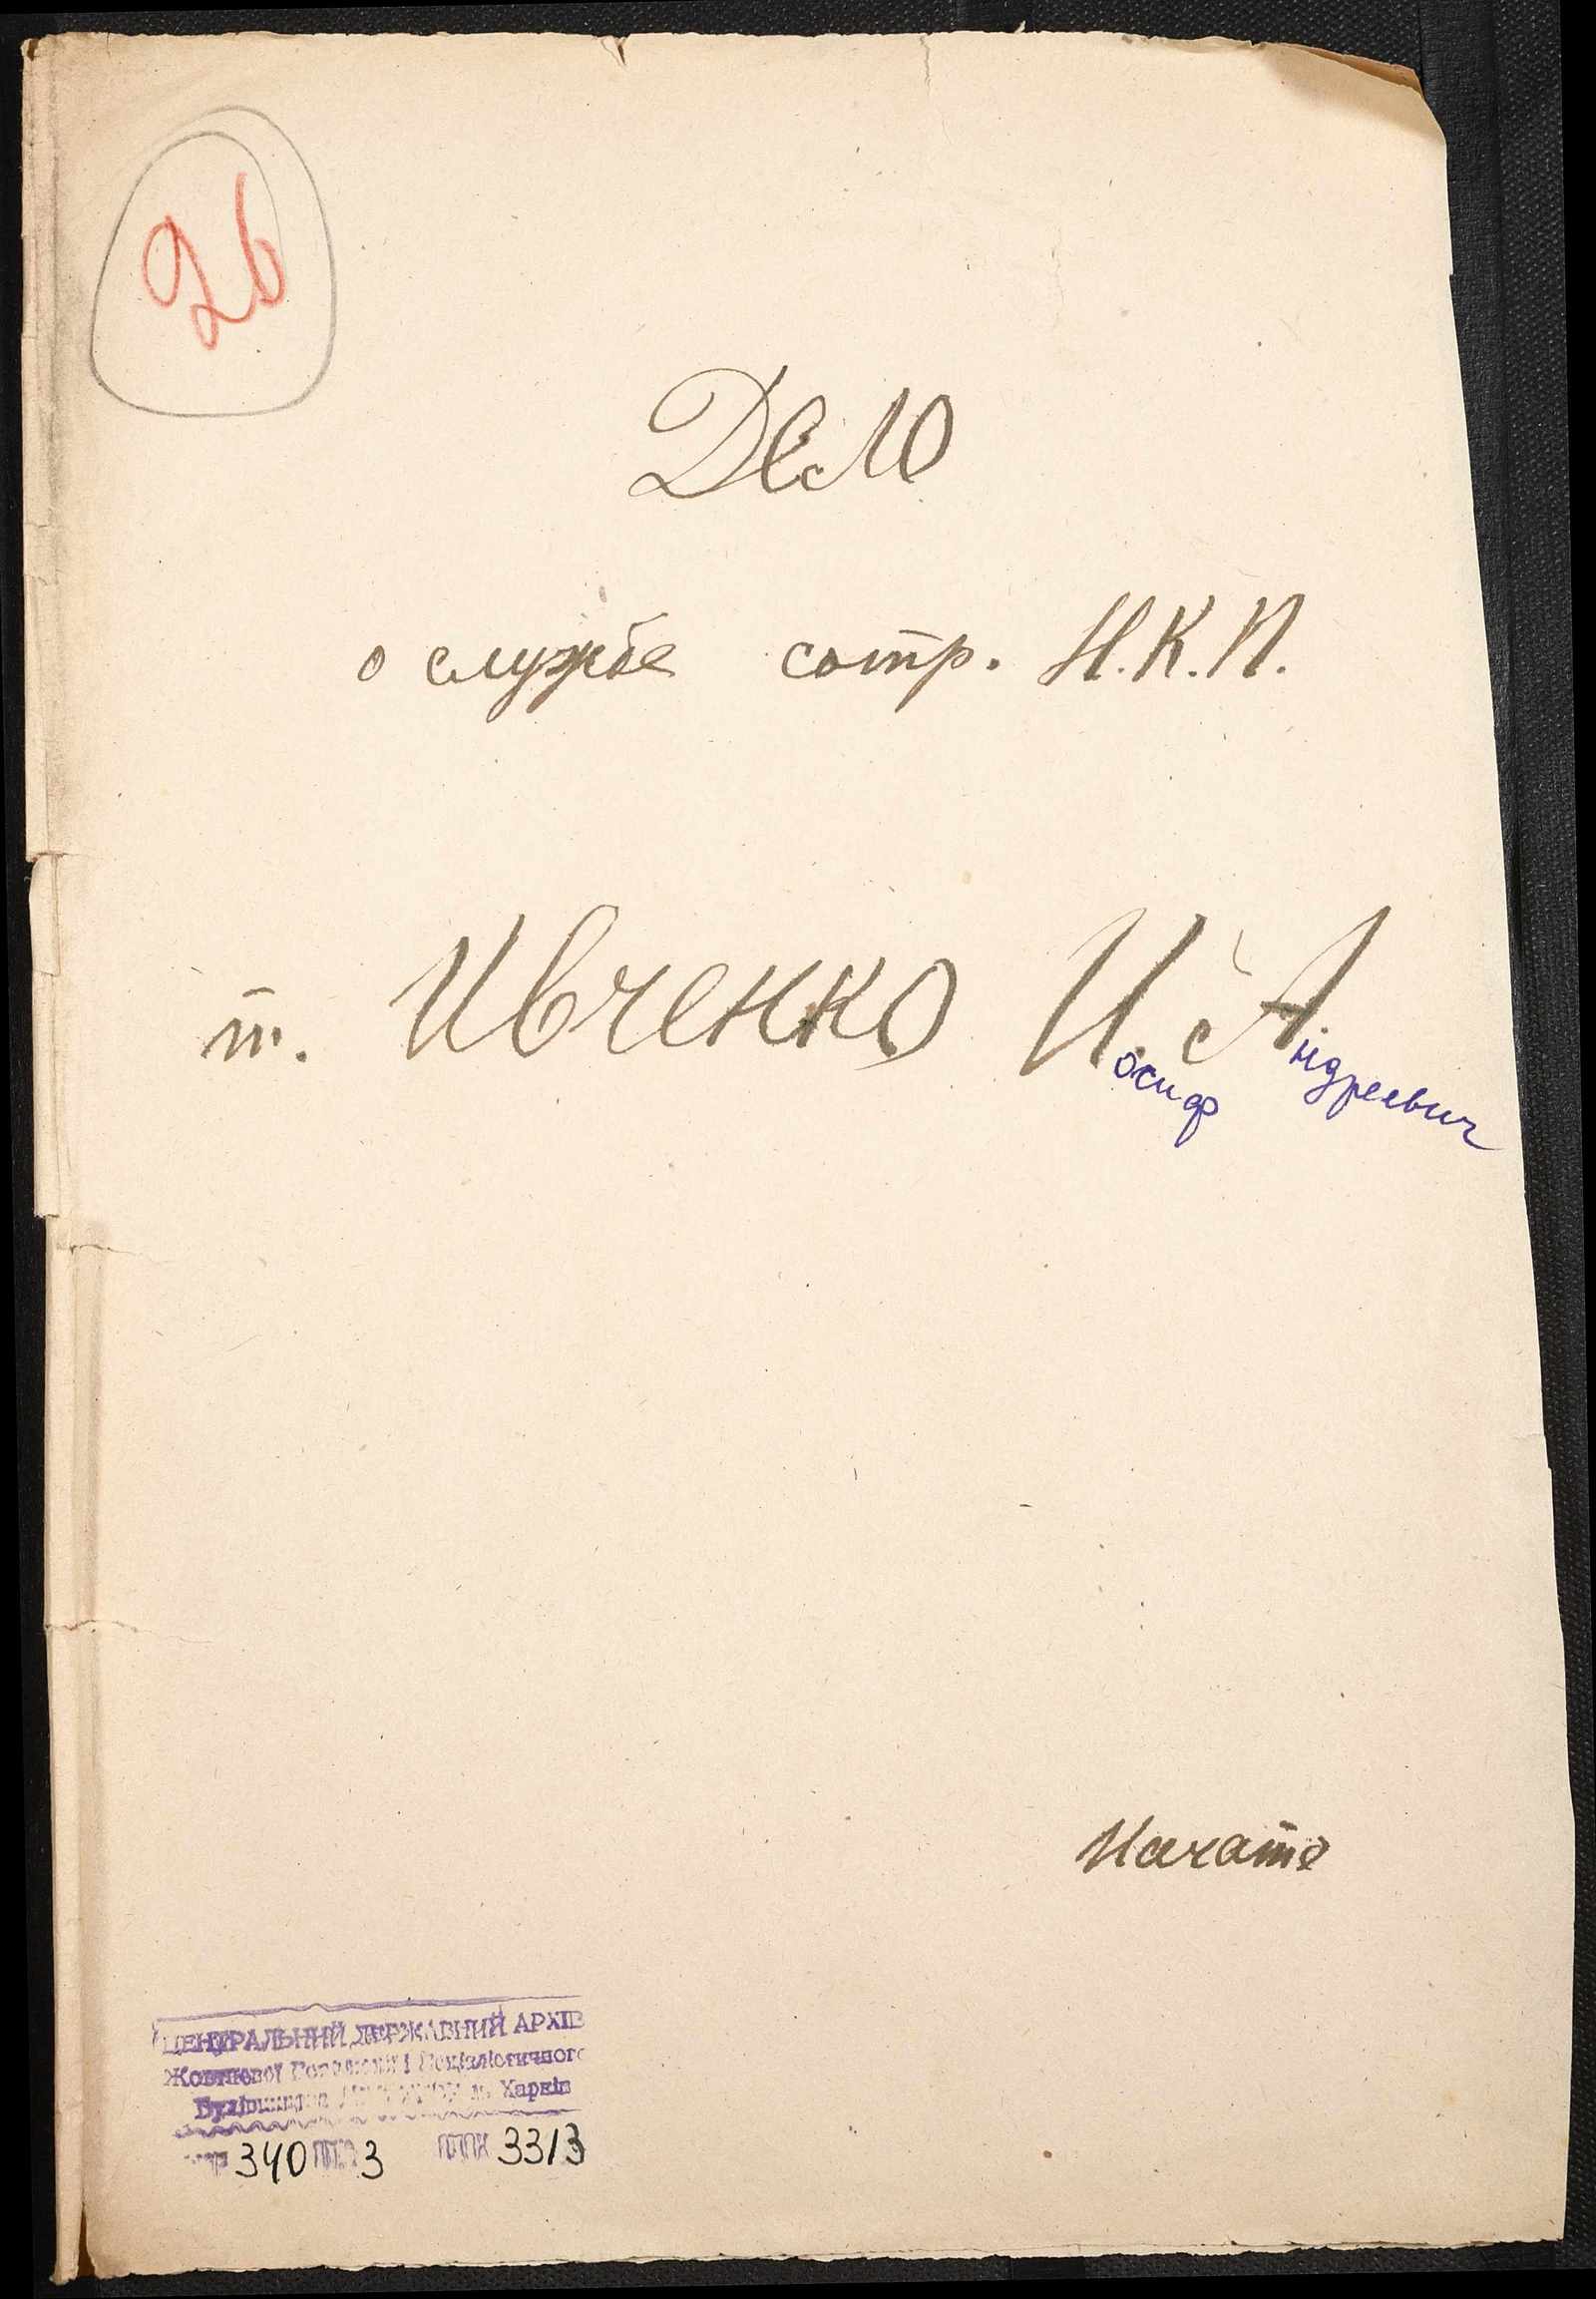 26
Дело
о службе сотр. Н.К.П.
т. Ивченко И. А.
осиф ндреевич
Начато
ЦЕНТРАЛЬНИЙ ДЕРЖАВНИЙ АРХІВ
Жовтневої Революції і Соціалістичного
Будівництва Харків
340 3 3313